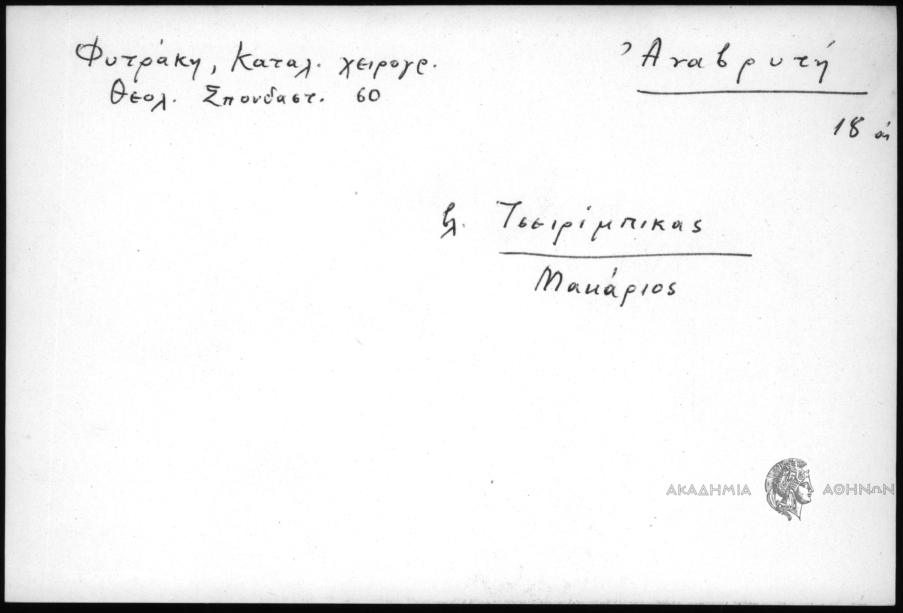 Φυτράκη, Καταλ. χειρογρ.
Θεολ. Σπουδαστ. 60
Ἀναβρυτή
18 αι
βλ. Τσειρίμπικας
Μακάριος
ΑΚΑΔΗΜΙΑ ΑΘΗΝΩΝ